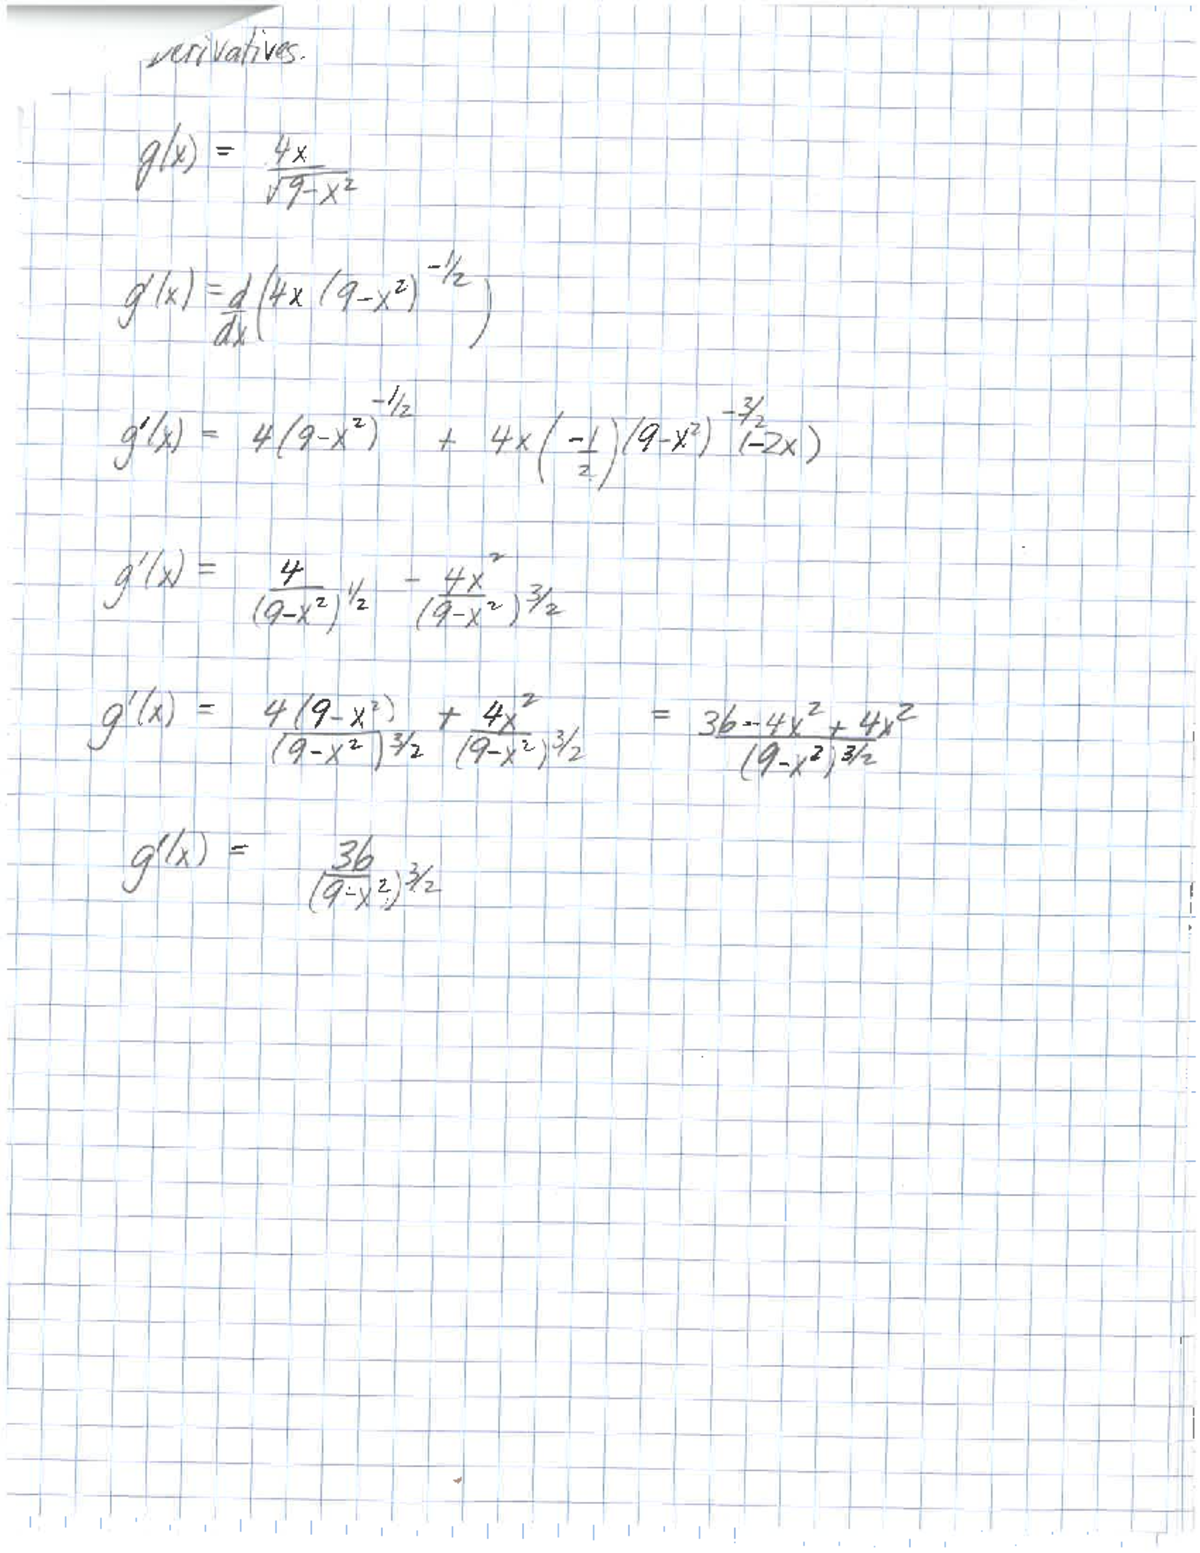 Derivatives.
g(x) = 4x / √(9-x²)
g'(x) = d/dx (4x (9-x²)^(-1/2))
g'(x) = 4(9-x²)^(-1/2) + 4x(-1/2)(9-x²)^(-3/2) (-2x)
g'(x) = 4/(9-x²)^(1/2) - 4x²/(9-x²)^(3/2)
g'(x) = 4(9-x²)/(9-x²)^(3/2) + 4x²/(9-x²)^(3/2) = (36-4x²+4x²)/(9-x²)^(3/2)
g'(x) = 36/(9-x²)^(3/2)